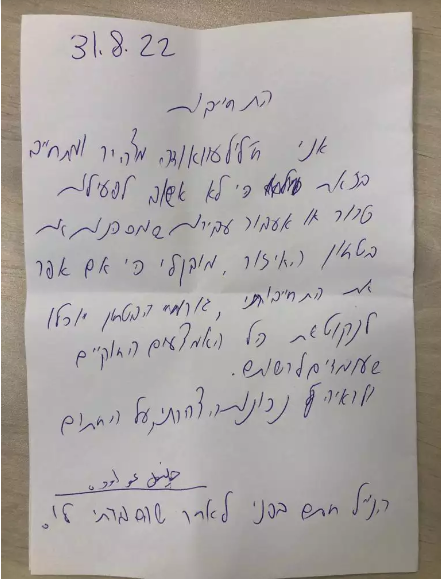 31.8.22
התחייבות
אני ח׳ליל עוואודה מצהיר ומתחייב
בזאת כי לא אשוב לפעילות
טרור או אעבור עבירות שמסכנות את
בטחון האיזור, מובן לי כי אם אפר
את התחייבותי, גורמי הבטחון יוכלו
לנקוט את כל האמצעים החוקיים
שעומדים לרשותם.
ולראיה נכונות הצהרתי, על החתום
הנ״ל חתם בפני לאחר שהסברתי לו.